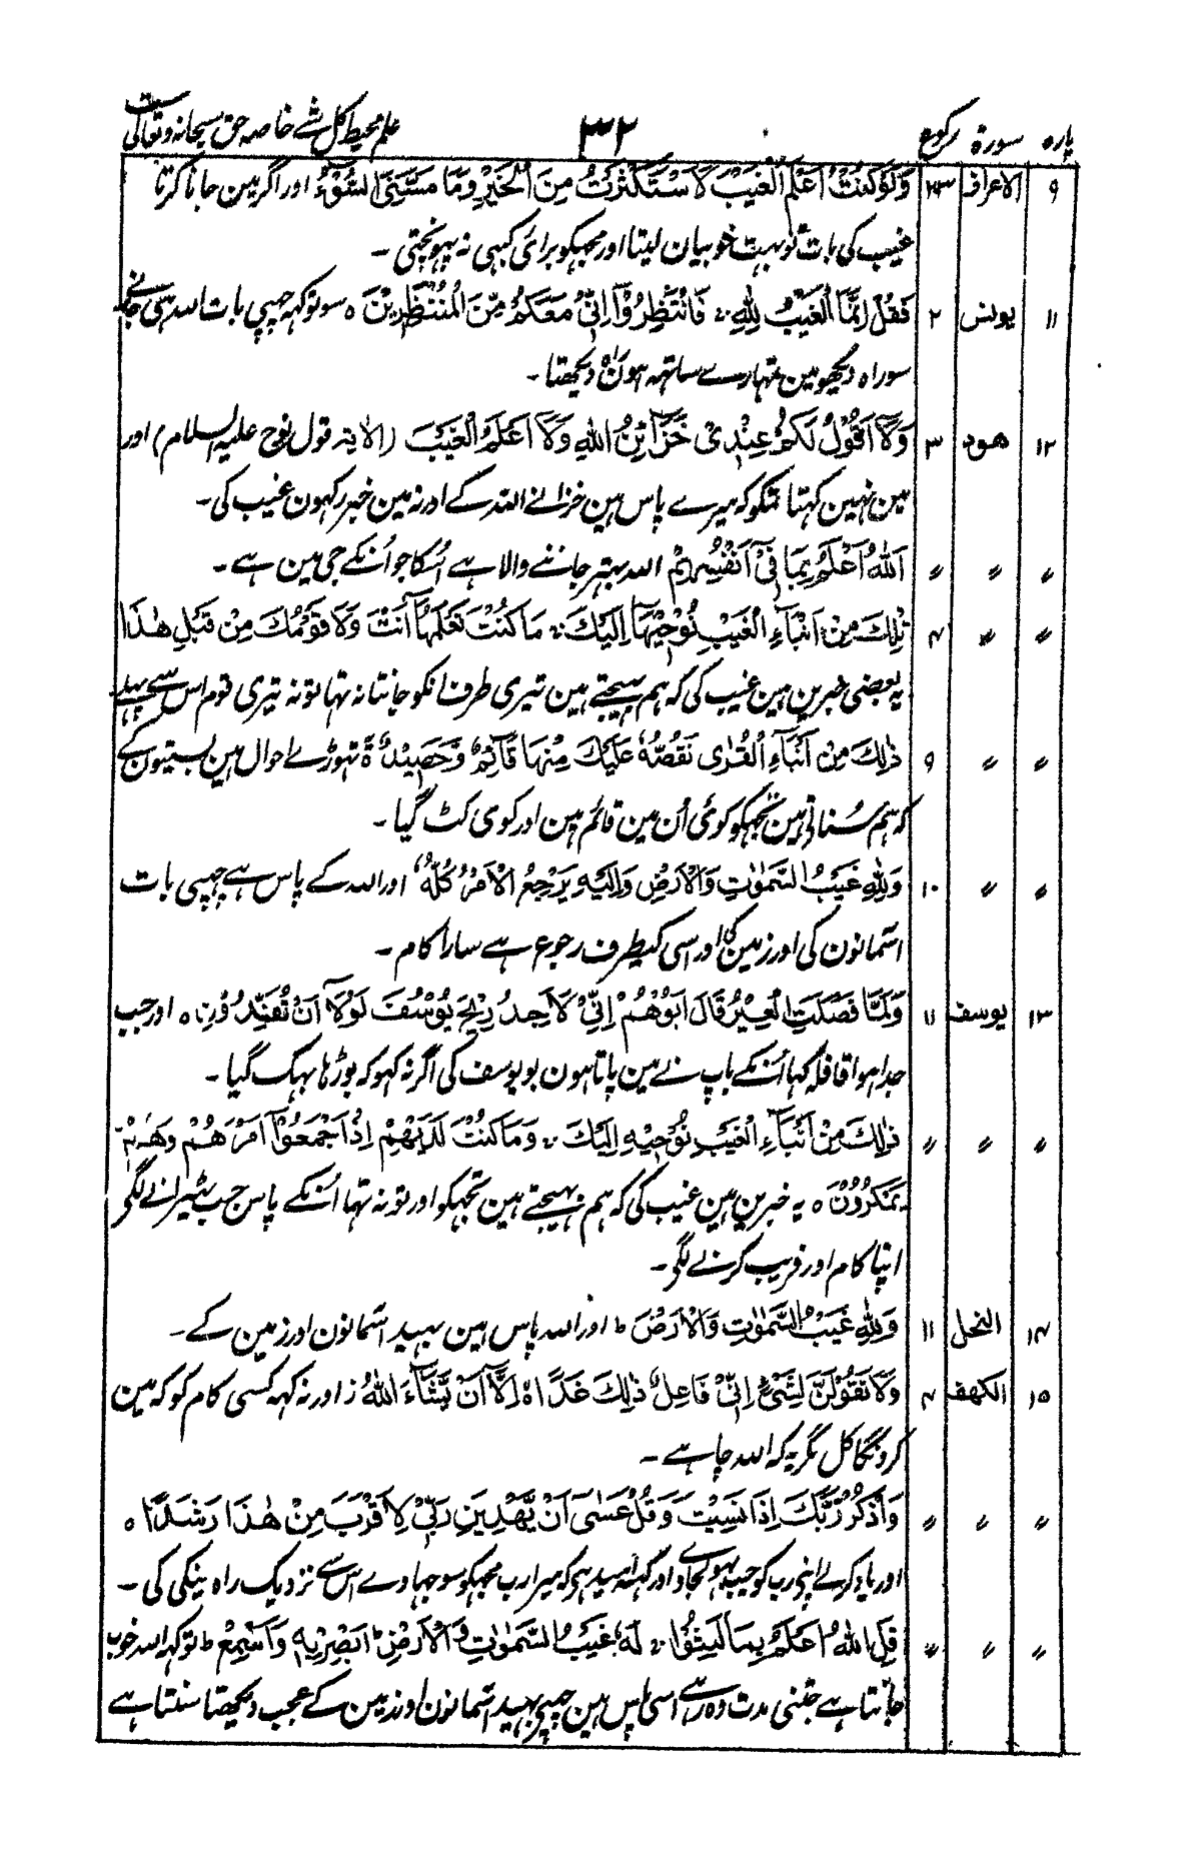 پارہ سورۃ رکوع ۳۲ علم محیط کل شے خاصہ حق سبحانہ وتعالی ست
۹ الاعراف ۲۳ وَلَوْ كُنْتُ اَعْلَمُ الْغَيْبَ لَاسْتَكْثَرْتُ مِنَ الْخَيْرِ وَمَا مَسَّنِيَ السُّوْٓءُ اور اگر مین جانا کرتا
غیب کی بات تو بہت خوبیان لیتا اور مجہکو برائی کبہی نہ پہونچتی ۔
۱۱ یونس ۲ فَقُلْ اِنَّمَا الْغَيْبُ لِلّٰهِ ۚ فَانْتَظِرُوْا اِنِّيْ مَعَكُمْ مِّنَ الْمُنْتَظِرِيْنَ ہ سو تو کہہ چہپی بات اللہ ہی جانے
سو راہ دیکہو مین تمہارے ساتہہ ہون راہ دیکہتا ۔
۱۲ ھود ۳ وَلَآ اَقُوْلُ لَكُمْ عِنْدِيْ خَزَآئِنُ اللّٰهِ وَلَآ اَعْلَمُ الْغَيْبَ (الاٰیۃ قول نوح علیہ السلام) اور
مین نہین کہتا تمکو کہ میرے پاس ہین خزانے اللہ کے اور نہ مین خبر رکہون غیب کی ۔
〃 〃 〃 اَللّٰهُ اَعْلَمُ بِمَا فِيْٓ اَنْفُسِهِمْ اللہ بہتر جاننے والا ہے اُسکا جو اُنکے جی مین ہے ۔
〃 〃 ۴ تِلْكَ مِنْ اَنْۢبَآءِ الْغَيْبِ نُوْحِيْهَآ اِلَيْكَ ۚ مَا كُنْتَ تَعْلَمُهَآ اَنْتَ وَلَا قَوْمُكَ مِنْ قَبْلِ هٰذَا
یہ بعضی خبرین ہین غیب کی کہ ہم بہیجتے ہین تیری طرف انکو جانتا نہ تہا تو نہ تیری قوم اس سے پہلے
〃 〃 ۹ ذٰلِكَ مِنْ اَنْۢبَآءِ الْقُرٰى نَقُصُّهٗ عَلَيْكَ مِنْهَا قَآئِمٌ وَّحَصِيْدٌ ہ یہ تہوڑے احوال ہین بستیون کے
کہ ہم سُناتے ہین تجہکو کوئی اُن مین قائم ہین اور کوی کٹ گیا ۔
〃 〃 ۱۰ وَلِلّٰهِ غَيْبُ السَّمٰوٰتِ وَالْاَرْضِ وَاِلَيْهِ يَرْجِعُ الْاَمْرُ كُلُّهٗ اور اللہ کے پاس ہے چہپی بات
آسمانون کی اور زمین کی اور اسی کیطرف رجوع ہے سارا کام ۔
۱۳ یوسف ۱۱ وَلَمَّا فَصَلَتِ الْعِيْرُ قَالَ اَبُوْهُمْ اِنِّيْ لَاَجِدُ رِيْحَ يُوْسُفَ لَوْلَآ اَنْ تُفَنِّدُوْنِ ہ اور جب
جدا ہوا قافلہ کہا اُنکے باپ نے مین پاتا ہون بو یوسف کی اگر نہ کہو کہ بوڑہا بہک گیا ۔
〃 〃 〃 ذٰلِكَ مِنْ اَنْۢبَآءِ الْغَيْبِ نُوْحِيْهِ اِلَيْكَ ۚ وَمَا كُنْتَ لَدَيْهِمْ اِذْ اَجْمَعُوْٓا اَمْرَهُمْ وَهُمْ
يَمْكُرُوْنَ ہ یہ خبرین ہین غیب کی کہ ہم بہیجتے ہین تجہکو اور تو نہ تہا اُنکے پاس جب ٹہیرانے لگی
اپنا کام اور فریب کرنے لگے ۔
۱۴ النحل ۱۱ وَلِلّٰهِ غَيْبُ السَّمٰوٰتِ وَالْاَرْضِ ط اور اللہ پاس ہین بہید آسمانون اور زمین کے ۔
۱۵ الکهف ۴ وَلَا تَقُوْلَنَّ لِشَيْءٍ اِنِّيْ فَاعِلٌ ذٰلِكَ غَدًا ہ اِلَّآ اَنْ يَّشَآءَ اللّٰهُ ز اور نہ کہہ کسی کام کو کہ مین
کرونگا کل مگر یہ کہ اللہ چاہے ۔
〃 〃 〃 وَاذْكُرْ رَّبَّكَ اِذَا نَسِيْتَ وَقُلْ عَسٰٓى اَنْ يَّهْدِيَنِ رَبِّيْ لِاَقْرَبَ مِنْ هٰذَا رَشَدًا ہ
اور یاد کر لے اپنی رب کو جب بہولجاوے اور کہہ امید ہے کہ میرا رب مجہکو سوجہاوے اس سے نزدیک راہ نیکی کی ۔
〃 〃 〃 قُلِ اللّٰهُ اَعْلَمُ بِمَا لَبِثُوْا ۚ لَهٗ غَيْبُ السَّمٰوٰتِ وَالْاَرْضِ ط اَبْصِرْ بِهٖ وَاَسْمِعْ ط تو کہہ اللہ خوب
جانتا ہے جتنی مدت وہ رہے اسی پاس ہین چہپے بہید آسمانون اور زمین کے عجب دیکہتا سنتا ہے